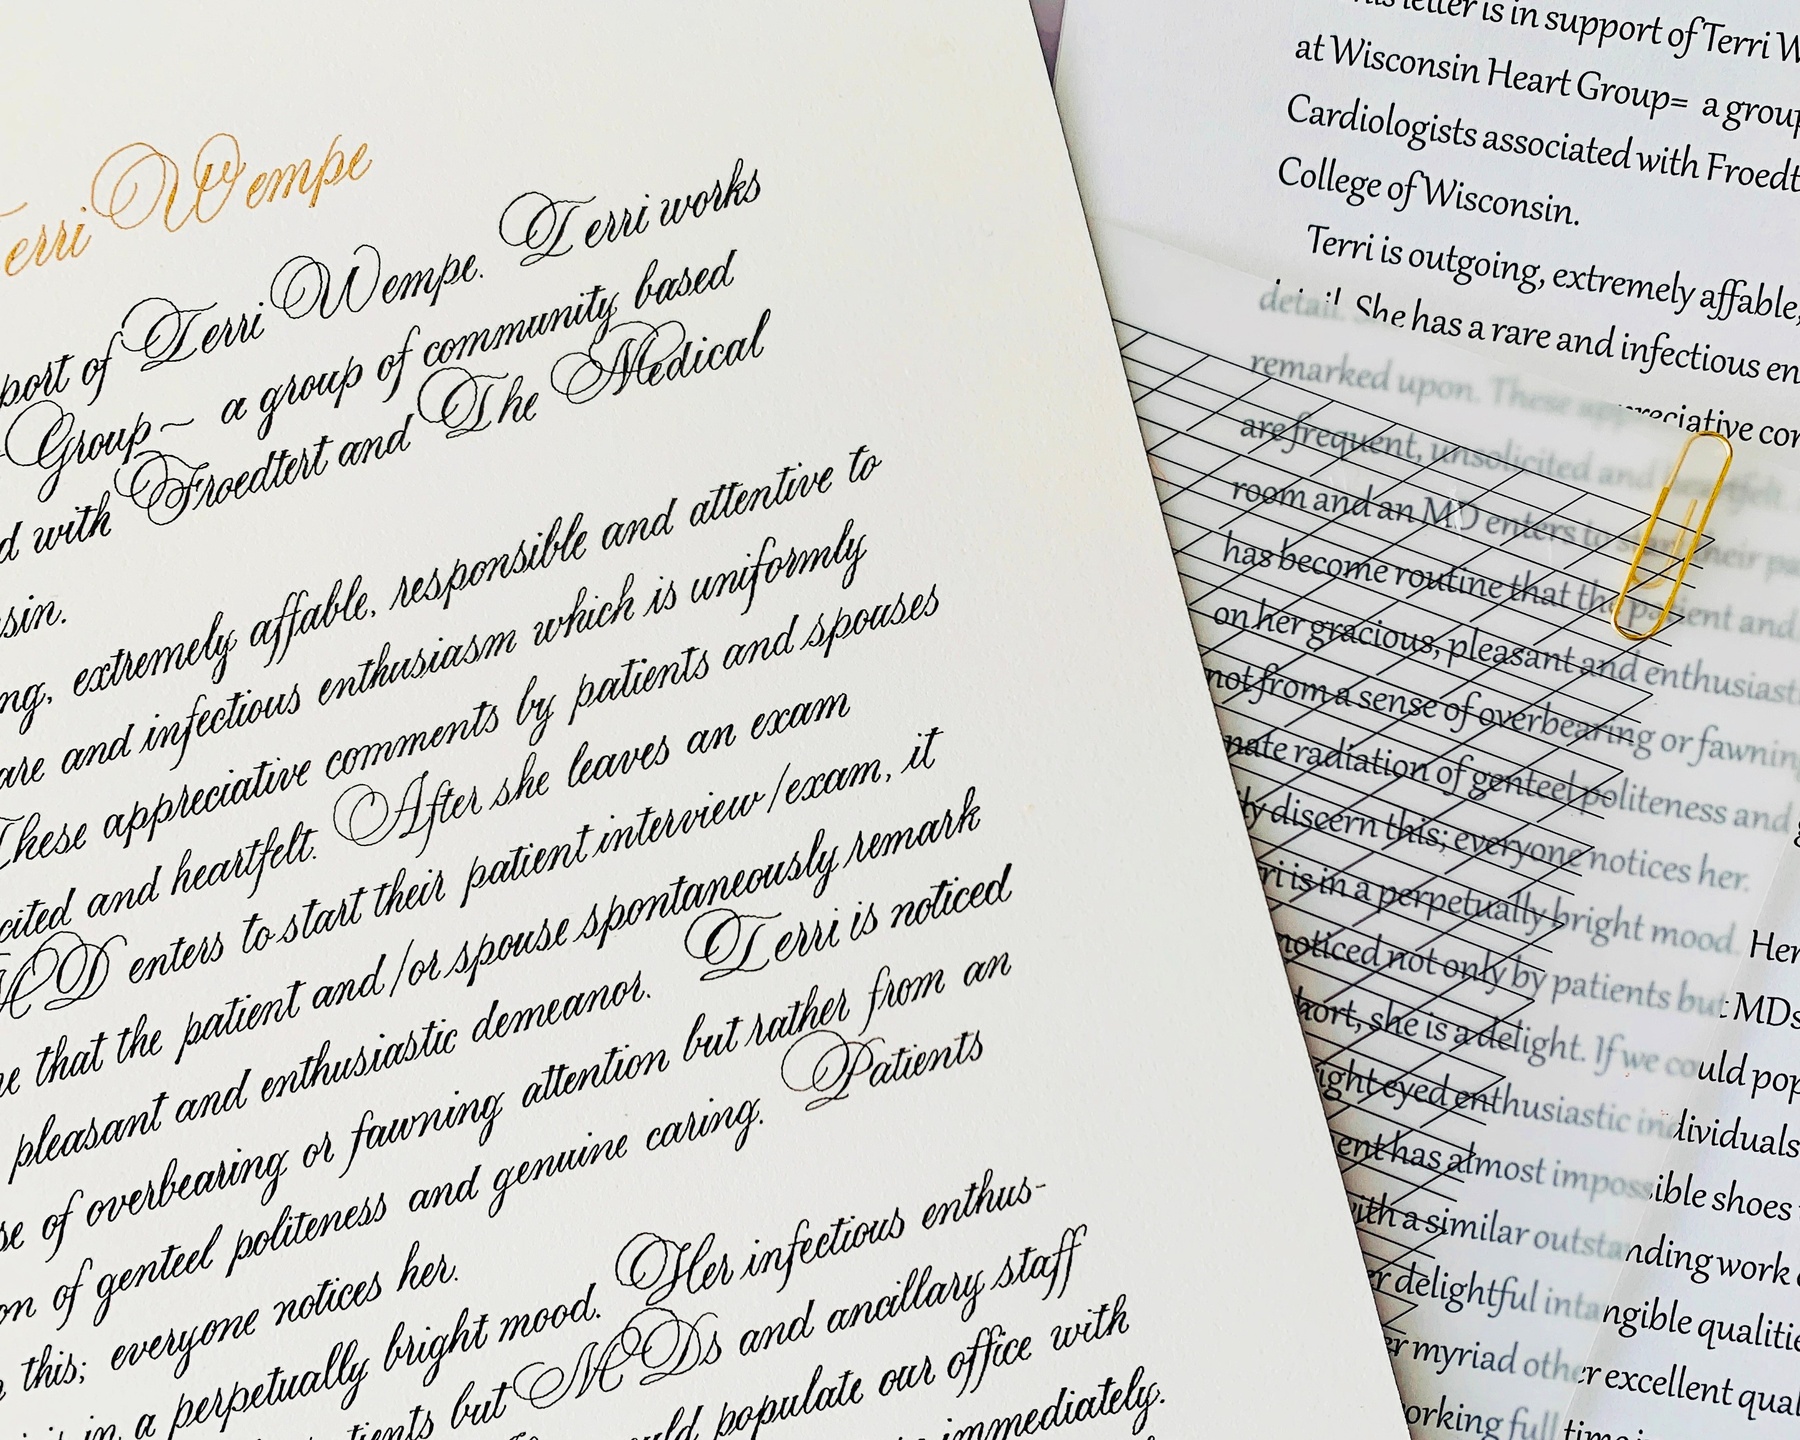 Terri Wempe
port of Terri Wempe. Terri works
Group~ a group of community based
d with Froedtert and The Medical
sin.
ng, extremely affable, responsible and attentive to
are and infectious enthusiasm which is uniformly
These appreciative comments by patients and spouses
cited and heartfelt. After she leaves an exam
MD enters to start their patient interview/exam, it
e that the patient and/or spouse spontaneously remark
pleasant and enthusiastic demeanor. Terri is noticed
se of overbearing or fawning attention but rather from an
on of genteel politeness and genuine caring. Patients
this; everyone notices her.
is in a perpetually bright mood. Her infectious enthus-
tients but MDs and ancillary staff
uld populate our office with
immediately.
his letter is in support of Terri W
at Wisconsin Heart Group= a group
Cardiologists associated with Froedt
College of Wisconsin.
Terri is outgoing, extremely affable,
detail. She has a rare and infectious en
remarked upon. These appreciative con
are frequent, unsolicited and heartfelt.
room and an MD enters to start their pa
has become routine that the patient and
on her gracious, pleasant and enthusiasti
not from a sense of overbearing or fawning
nate radiation of genteel politeness and g
ly discern this; everyone notices her.
ri is in a perpetually bright mood. Her
noticed not only by patients but MDs
hort, she is a delight. If we could pop
ight eyed enthusiastic individuals
ent has almost impossible shoes
with a similar outstanding work
er delightful intangible qualitie
er myriad other excellent qual
orking full time i